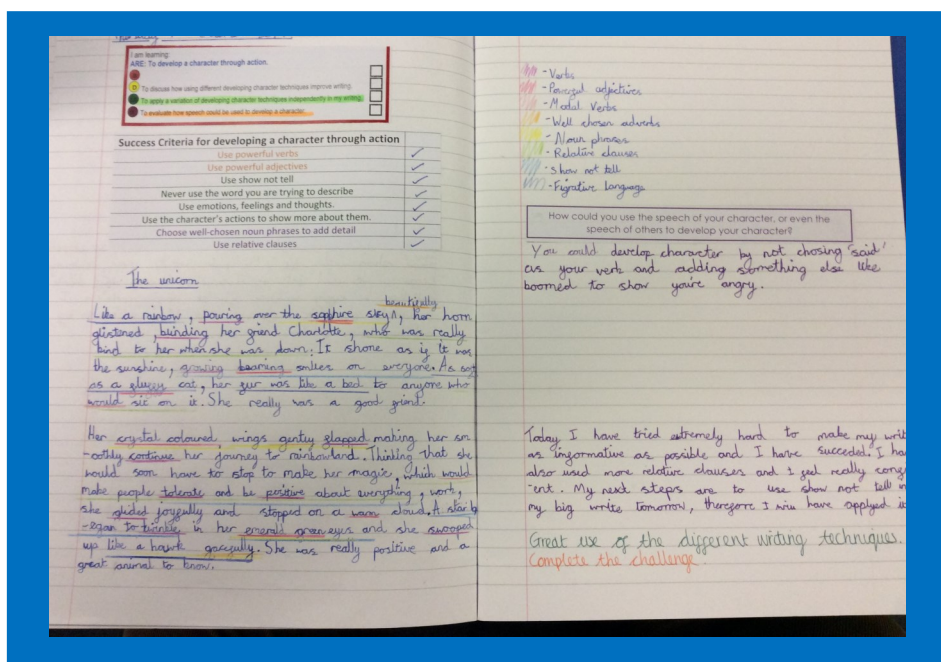 I am learning:
ARE: To develop a character through action.
To discuss how using different developing character techniques improve writing.
To apply a variation of developing character techniques independently in my writing.
To evaluate how speech could be used to develop a character.
Success Criteria for developing a character through action
Use powerful verbs
Use powerful adjectives
Use show not tell
Never use the word you are trying to describe
Use emotions, feelings and thoughts.
Use the character's actions to show more about them.
Choose well-chosen noun phrases to add detail
Use relative clauses
The unicorn
beautifully
Like a rainbow, pouring over the sapphire sky^, her horn
glistened, blinding her friend Charlotte, who was really
kind to her when she was down. It shone as if it was
the sunshine, growing beaming smiles on everyone. As sof
as a fluffy cat, her fur was like a bed to anyone who
would sit on it. She really was a good friend.
Her crystal coloured, wings gently flapped making her sm
-oothly continue her journey to rainbowland. Thinking that she
would soon have to stop to make her magic, which would
make people tolerate and be positive about everything, work,
she glided joyfully and stopped on a warm cloud. A star b
-egan to twinkle in her emerald green eyes and she swooped
up like a hawk gracefully. She was really positive and a
great animal to know.
- Verbs
- Powerful adjectives
- Modal Verbs
- Well chosen adverbs
- Noun phrases
- Relative clauses
- show not tell
- Figrative language
How could you use the speech of your character, or even the
speech of others to develop your character?
You could develop character by not chosing 'said'
as your verb and adding something else like
boomed to show you're angry.
Today I have tried extremely hard to make my writ
as informative as posible and I have succeded. I ha
also used more relative clauses and I feel really cong
-ent. My next steps are to use show not tell in
my big write tomorrow, therefore I will have applyed it
Great use of the different writing techniques.
Complete the challenge.